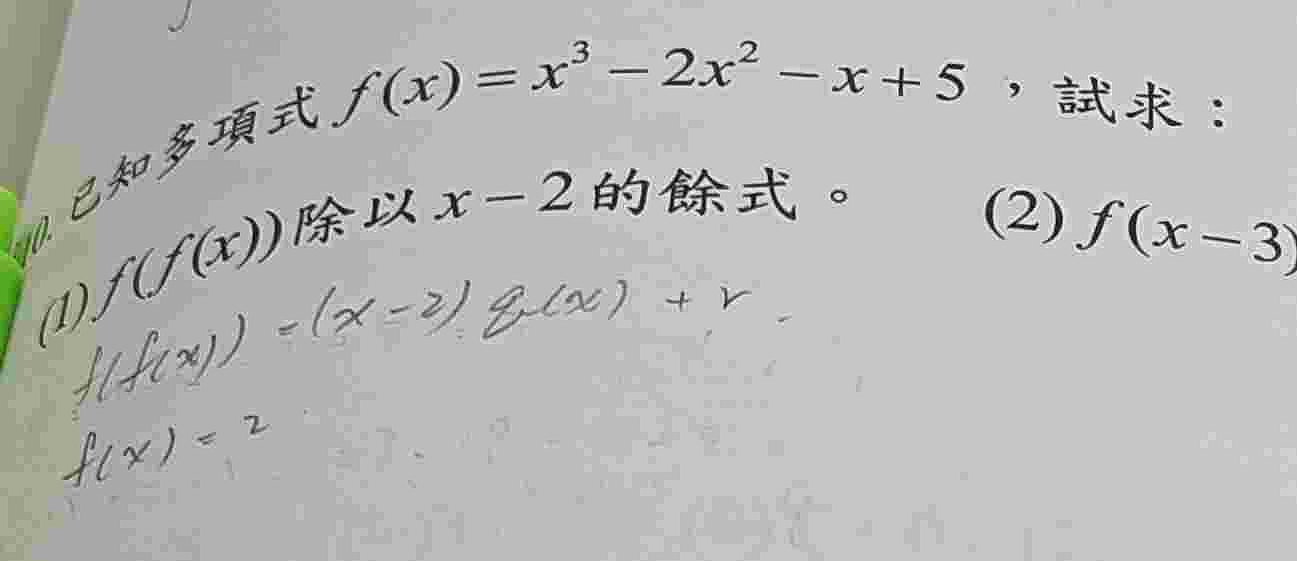 10. 已知多項式 f(x) = x³ − 2x² − x + 5 ，試求：
(1) f(f(x)) 除以 x − 2 的餘式。 (2) f(x − 3)
f(f(x)) = (x − 2) q(x) + r
f(x) = 2